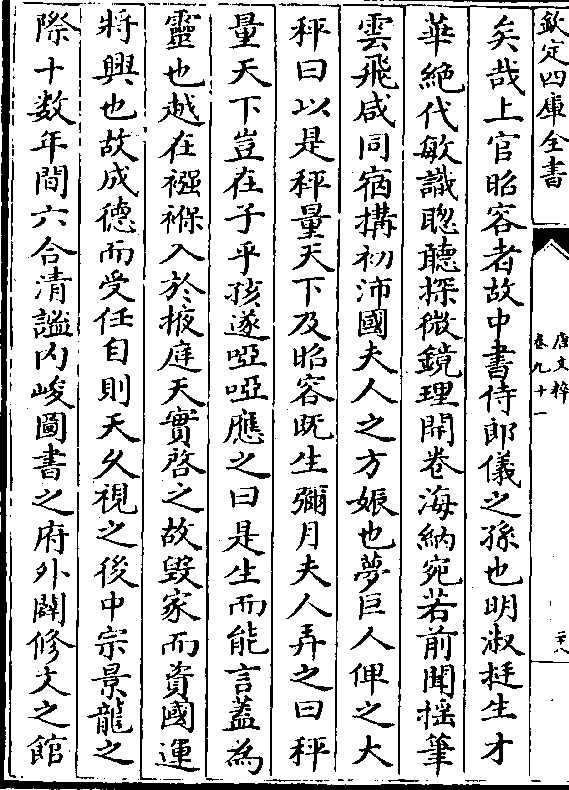 欽定四庫全書
唐文粹
卷九十一
二十八
矣哉上官昭容者故中書侍郎儀之孫也明淑挺生才
華絶代敏識聰聽探微鏡理開卷海納宛若前聞揺筆
雲飛咸同宿搆初沛國夫人之方娠也夢巨人俾之大
秤曰以是秤量天下及昭容既生彌月夫人弄之曰秤
量天下豈在子乎孩遂啞啞應之曰是生而能言蓋為
靈也越在襁褓入於掖庭天實啓之故毀家而資國運
將興也故成德而受任自則天久視之後中宗景龍之
際十数年間六合清謐内峻圖書之府外闢修文之館